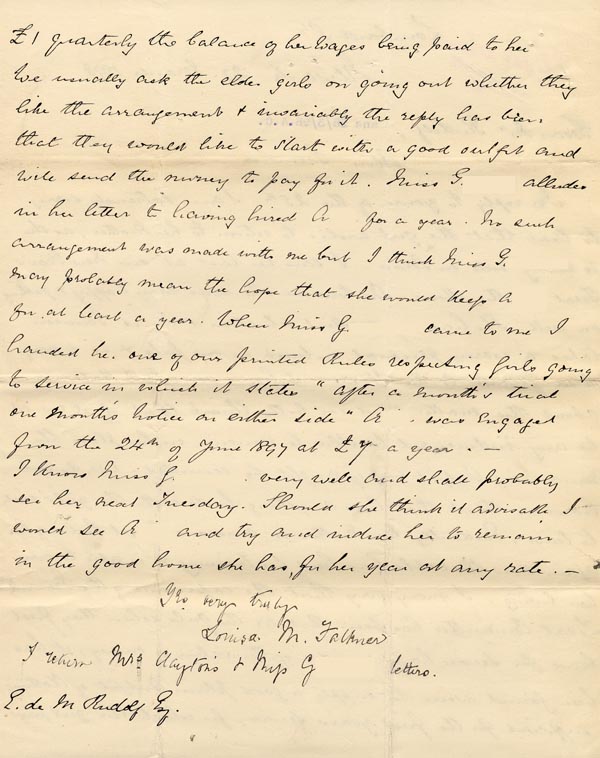 £1 quarterly the balance of her wages being paid to her
We usually ask the elder girls on going out whether they
like the arrangement & invariably the reply has been
that they would like to start with a good outfit and
will send the money to pay for it. Miss G. alludes
in her letter to having hired A for a year. No such
arrangement was made with me but I think Miss G.
may probably mean the hope that she would keep A
for at least a year. When Miss G. came to me I
handed her one of our printed Rules respecting girls going
to service in which it states "after a month's trial
one month's notice on either side" A. was engaged
from the 24th of June 1897 at £7 a year. —
I know Miss G. very well and shall probably
see her next Tuesday. Should she think it advisable I
would see A and try and induce her to remain
in the good home she has, for her year at any rate. —
Yrs very truly
Louisa M. Falkner
I return Mrs Clayton's & Miss G letters.
E. de M Rudolf Esq.